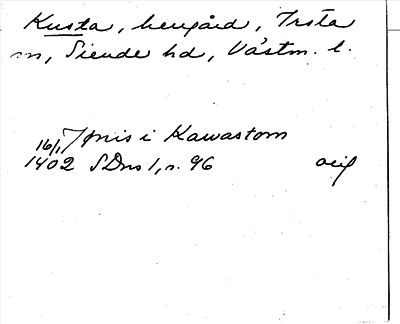 Kusta, herrgård, Irsta
sn, Siende hd, Västm. l.
16/1 Jönis i Kawastom
1402 SDns 1, n. 96 orig